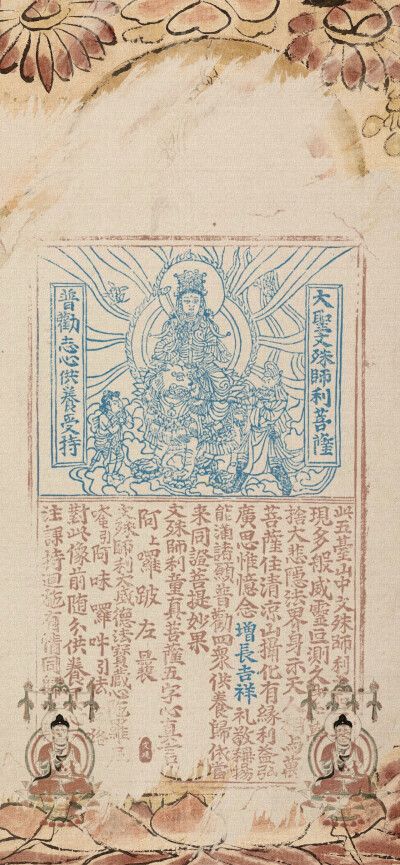 大聖文殊師利菩薩
普勸志心供養受持
此五臺山中文殊師利
現多般威靈叵測久
捨大悲隱法界身示天人相與萬
菩薩住清涼山攝化有緣利益弘
廣思惟憶念增長吉祥礼敬稱揚
能滿諸願普勸四眾供養歸依當
來同證菩提妙果
文殊師利童真菩薩五字心真言
阿上囉跛左曩
文殊師利大威德法寶藏心陀羅尼
唵引阿味囉吽引佉
對此像前随分供養
注課持迴施有情同